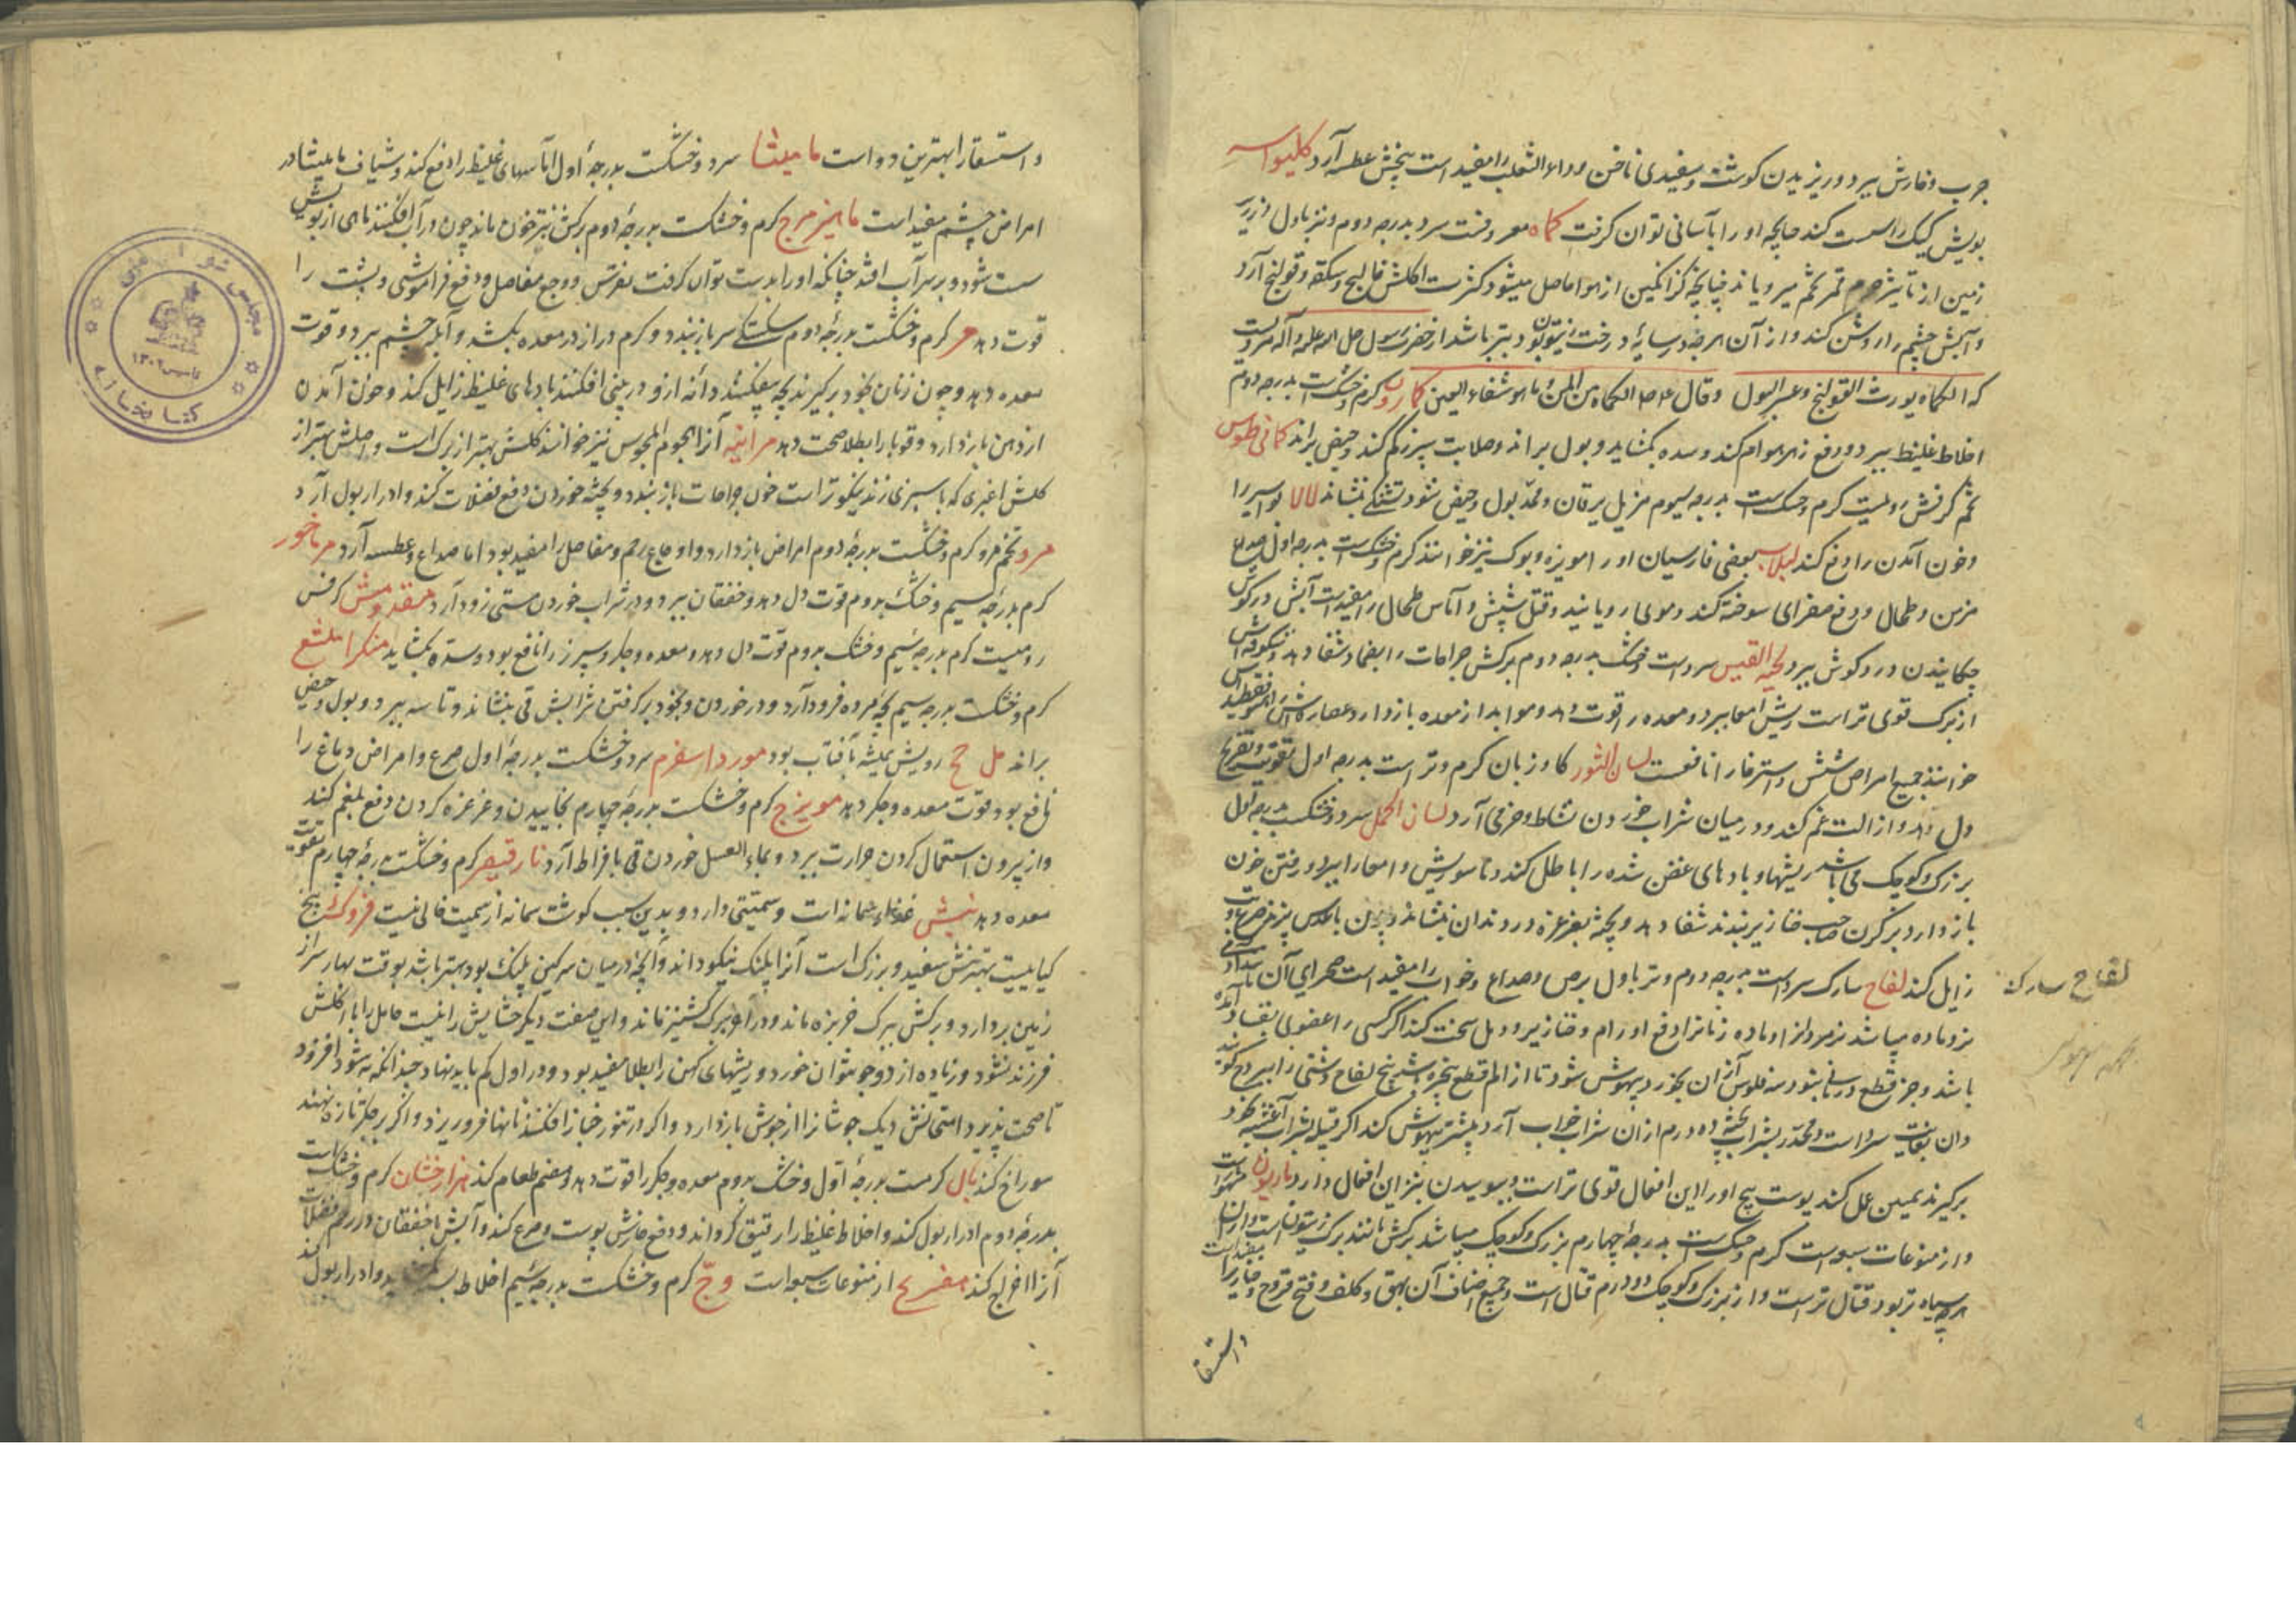 جرب و خارش ببرد و ریزیدن کوشت و سفیدی ناخن و داء الثعلب را مفید است بیخش عطسه آرد کلیواسه
بویش کیک را سست کند چنانچه او را بآسانی توان کرفت کماه معروفست سرد بدرجه دوم و تر باول از زیر
زمین از تاثیر جرم قمر بی تخم میرویاند چنانچه کزانکبین از هوا حاصل میشود کثرت اکلش فالج و سکته و قولنج آرد
و آبش چشم را روشن کند و از آن هرچه در سایهٔ درخت زیتون بود بتر باشد از حضرت رسول صلی الله علیه و آله مرویست
که الکماه یورث القولنج و عسر البول و قال الکماه من المن ماءها شفاء العین کمادریوس کرم و خشکست بدرجه دوم
اخلاط غلیظ ببرد و دفع زهر هوام کند و سده بکشاید و بول براند و صلابت سپرز کم کند و حیض براند کمافیطوس
تخم کرفس رومیست کرم و خشکست بدرجه سیوم مزیل یرقان و مدر بول و حیض شود تشنکی بنشاند لالا بواسیر را
و خون آمدن را دفع کند لبلاب بعضی فارسیان او را مویزه و بوک نیز خوانند کرم و خشکست بدرجه اول صداع
مزمن و طحال و دفع صفرای سوخته کند و موی رویانید و قتل شپش و آماس طحال را مفید است آبش در کوش
چکانیدن درد کوش ببرد لحیة التیس سردست و خشک بدرجه دوم برکش جراحات را بضماد شفا دهد و شکوفه‌اش
از برک قوی تر است ریش امعا ببرد و معده را قوت دهد و مواد از معده باز دارد عصاره‌اش را هیوفقسطیداس
خوانند جمیع امراض شش و استرخا را نافعست لسان الثور کاوزبان کرم و تر است بدرجه اول تقویت و تفریح
دل دهد و ازالت غم کند و در میان شراب خوردن نشاط و خرمی آرد لسان الحمل سرد و خشکست بدرجه اول
بزرک و کوچک می باشد ریشها و بادهای عفن شده را باطل کند و ناسور ریش و امعا را ببرد و رفتن خون
باز دارد بر کردن صاحب خنازیر بندند شفا دهد و پخته بغرغره درد دندان بنشاند و چون با عدس پزند صرع
زایل کند لفاح سابرک سردست بدرجه دوم و تر باول برص و صداع و خواب را مفید است صحرای آن
نر و ماده میباشد نر مر و نر را و ماده زنانرا دفع اورام و خنازیر و دمل سخت کند اکر کسی را عضوی بفساد آمده
باشد و جز قطع درمانی نبود سه فلوس از آن بخورد بیهوش شود تا از الم قطع بیخبر و شیر بیخ لفاح دشتی را یبروح کویند
و آن بغایت سرد است و مخدر بشراب پخته ده درم از آن شراب خواب آرد و بیشتر بیهوش کند اکر فتیله بشراب آغشته بخود
برکیرند همین عمل کند پوست بیخ او را این افعال قوی تر است و ببوییدن نیز این افعال دارد ماذریون مشهور است
و از منوعات سبعه است کرم و خشکست بدرجهٔ چهارم بزرک و کوچک میباشد برکش مانند برک زیتون است و از انها
هرچه سیاه تر بود قتال تر است و از بزرک و کوچک دو درم قتال است و جمیع اصناف آن بهق و کلف و فتح قروح و خنازیر را مفید است
و استسقا
لفاح سابرک
و استسقا را بهترین دواست مامیثا سرد و خشکست بدرجهٔ اول آماسهای غلیظ را دفع کند و شیاف مامیثا در
امراض چشم مفید است ماهیزهرج کرم و خشکست بدرجهٔ دوم برکش بترخون ماند چون در آب افکنند ماهی از بویش
مست شود و بر سر آب افتد چنانکه او را بدست توان کرفت نقرس و وجع مفاصل و دفع فراموشی و پشت را
قوت دهد مر کرم و خشکست بدرجهٔ دوم شکستکی سر باز بندد و کرم دراز در معده بکشد و آبله چشم ببرد و قوت
معده دهد و چون زنان بخود برکیرند بچه بیفکنند دانه ازو در بینی افکنند بادهای غلیظ زایل کند و خون آمدن
از دهن باز دارد و قوبا را بطلا صحت دهد مرانیه آنرا نجوم المجوس نیز خوانند کلش بهتر از برک است و اصلش بهتر از
کلش اغبری که با سبزی زند نیکوتر است خون جراحات باز بندد و پخته خوردن دفع فضلات کند و ادرار بول آرد
مرو تخم مرو کرم و خشکست بدرجهٔ دوم امراض باز دارد و اوجاع رحم و مفاصل را مفید بود اما صداع و عطسه آرد مرماخور
کرم بدرجهٔ سیم و خشک بدوم قوت دل دهد و خفقان ببرد و در شراب خوردن مستی زود آرد مقدونس کرفس
رومیست کرم بدرجه سیم و خشک بدوم قوت دل دهد و معده و جکر و سپرز را نافع بود و سده بکشاید مشکرامشیع
کرم و خشکست بدرجه سیم بچه مرده فرود آرد و در خوردن و بخود برکرفتن شرابش قی بنشاند و تاسه ببرد و بول و حیض
براند ملاح رویش همیشه بآفتاب بود مورد اسفرم سرد و خشکست بدرجهٔ اول صرع و امراض دماغ را
نافع بود و قوت معده و جکر دهد مویزج کرم و خشکست بدرجهٔ چهارم بخاییدن و غرغره کردن دفع بلغم کند
و از بیرون استعمال کردن حرارت ببرد و بماء العسل خوردن قی بافراط آرد نارقیصر کرم و خشکست بدرجهٔ چهارم تقویت
معده دهد نبش غذاء سمانه است و سمیتی دارد و بدین سبب کوشت سمانه از سمیت خالی نیست فزوکش بیخ
کیاهیست بهترینش سفید و بزرک است آنرا پلنک نیکو داند و آنچه در میان سرکین پلنک بود بهتر باشد بوقت بهار سر از
زمین بردارد و برکش ببرک خربزه ماند و در آخر ببرک کشنیز ماند و این صفت دیکر حشایش را نیست حامل را با اکلش
فرزند نشود و زیاده از دو جو نتوان خورد و ریشهای کهن را بطلا مفید بود و در اول کم باید نهاد چندانکه به شود افزود
تا صحت پذیرد امتحانش دیک جوشانرا از جوش باز دارد و اکر در تنور خباز افکنند نانها فرو ریزد و اکر بر جکر تازه نهند
سوراخ کند هال کرمست بدرجهٔ اول و خشک بدوم معده و جکر را قوت دهد و هضم طعام کند هزارجشان کرم و خشک است
بدرجهٔ دوم ادرار بول کند و اخلاط غلیظ را رقیق کرداند و دفع خارش پوست و صرع کند و آبش با خفقان و ورم فضلات
آنرا اخراج کند مفرح از منوعات سبعه است وج کرم و خشکست بدرجه سیم اخلاط و ادرار بول کند
مجلس شورای ملی
تاسیس ۱۳۰۲
کتابخانه